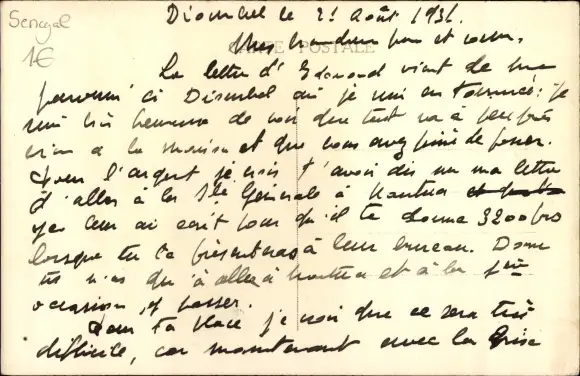 Senegal
1€
Diourbel le 21 Août 1931.
CARTE POSTALE
Mes
La lettre d'Edouard vient de me
parvenir ici Diourbel où je suis en tournée; je
suis très heureux de voir que tout va à peu près
à la maison et que vous avez fini de
Pour l'argent je t'avais dis sur ma lettre
d'aller à la Sté Générale à Nantua
je leur ai écrit pour qu'il te donne 3200 frs
lorsque tu te présenteras à leur bureau. Donc
tu n'as qu'à aller à Nantua et à la 1ère
occasion, passer.
Pour ta place je vois que ce sera très
difficile, car maintenant avec la crise